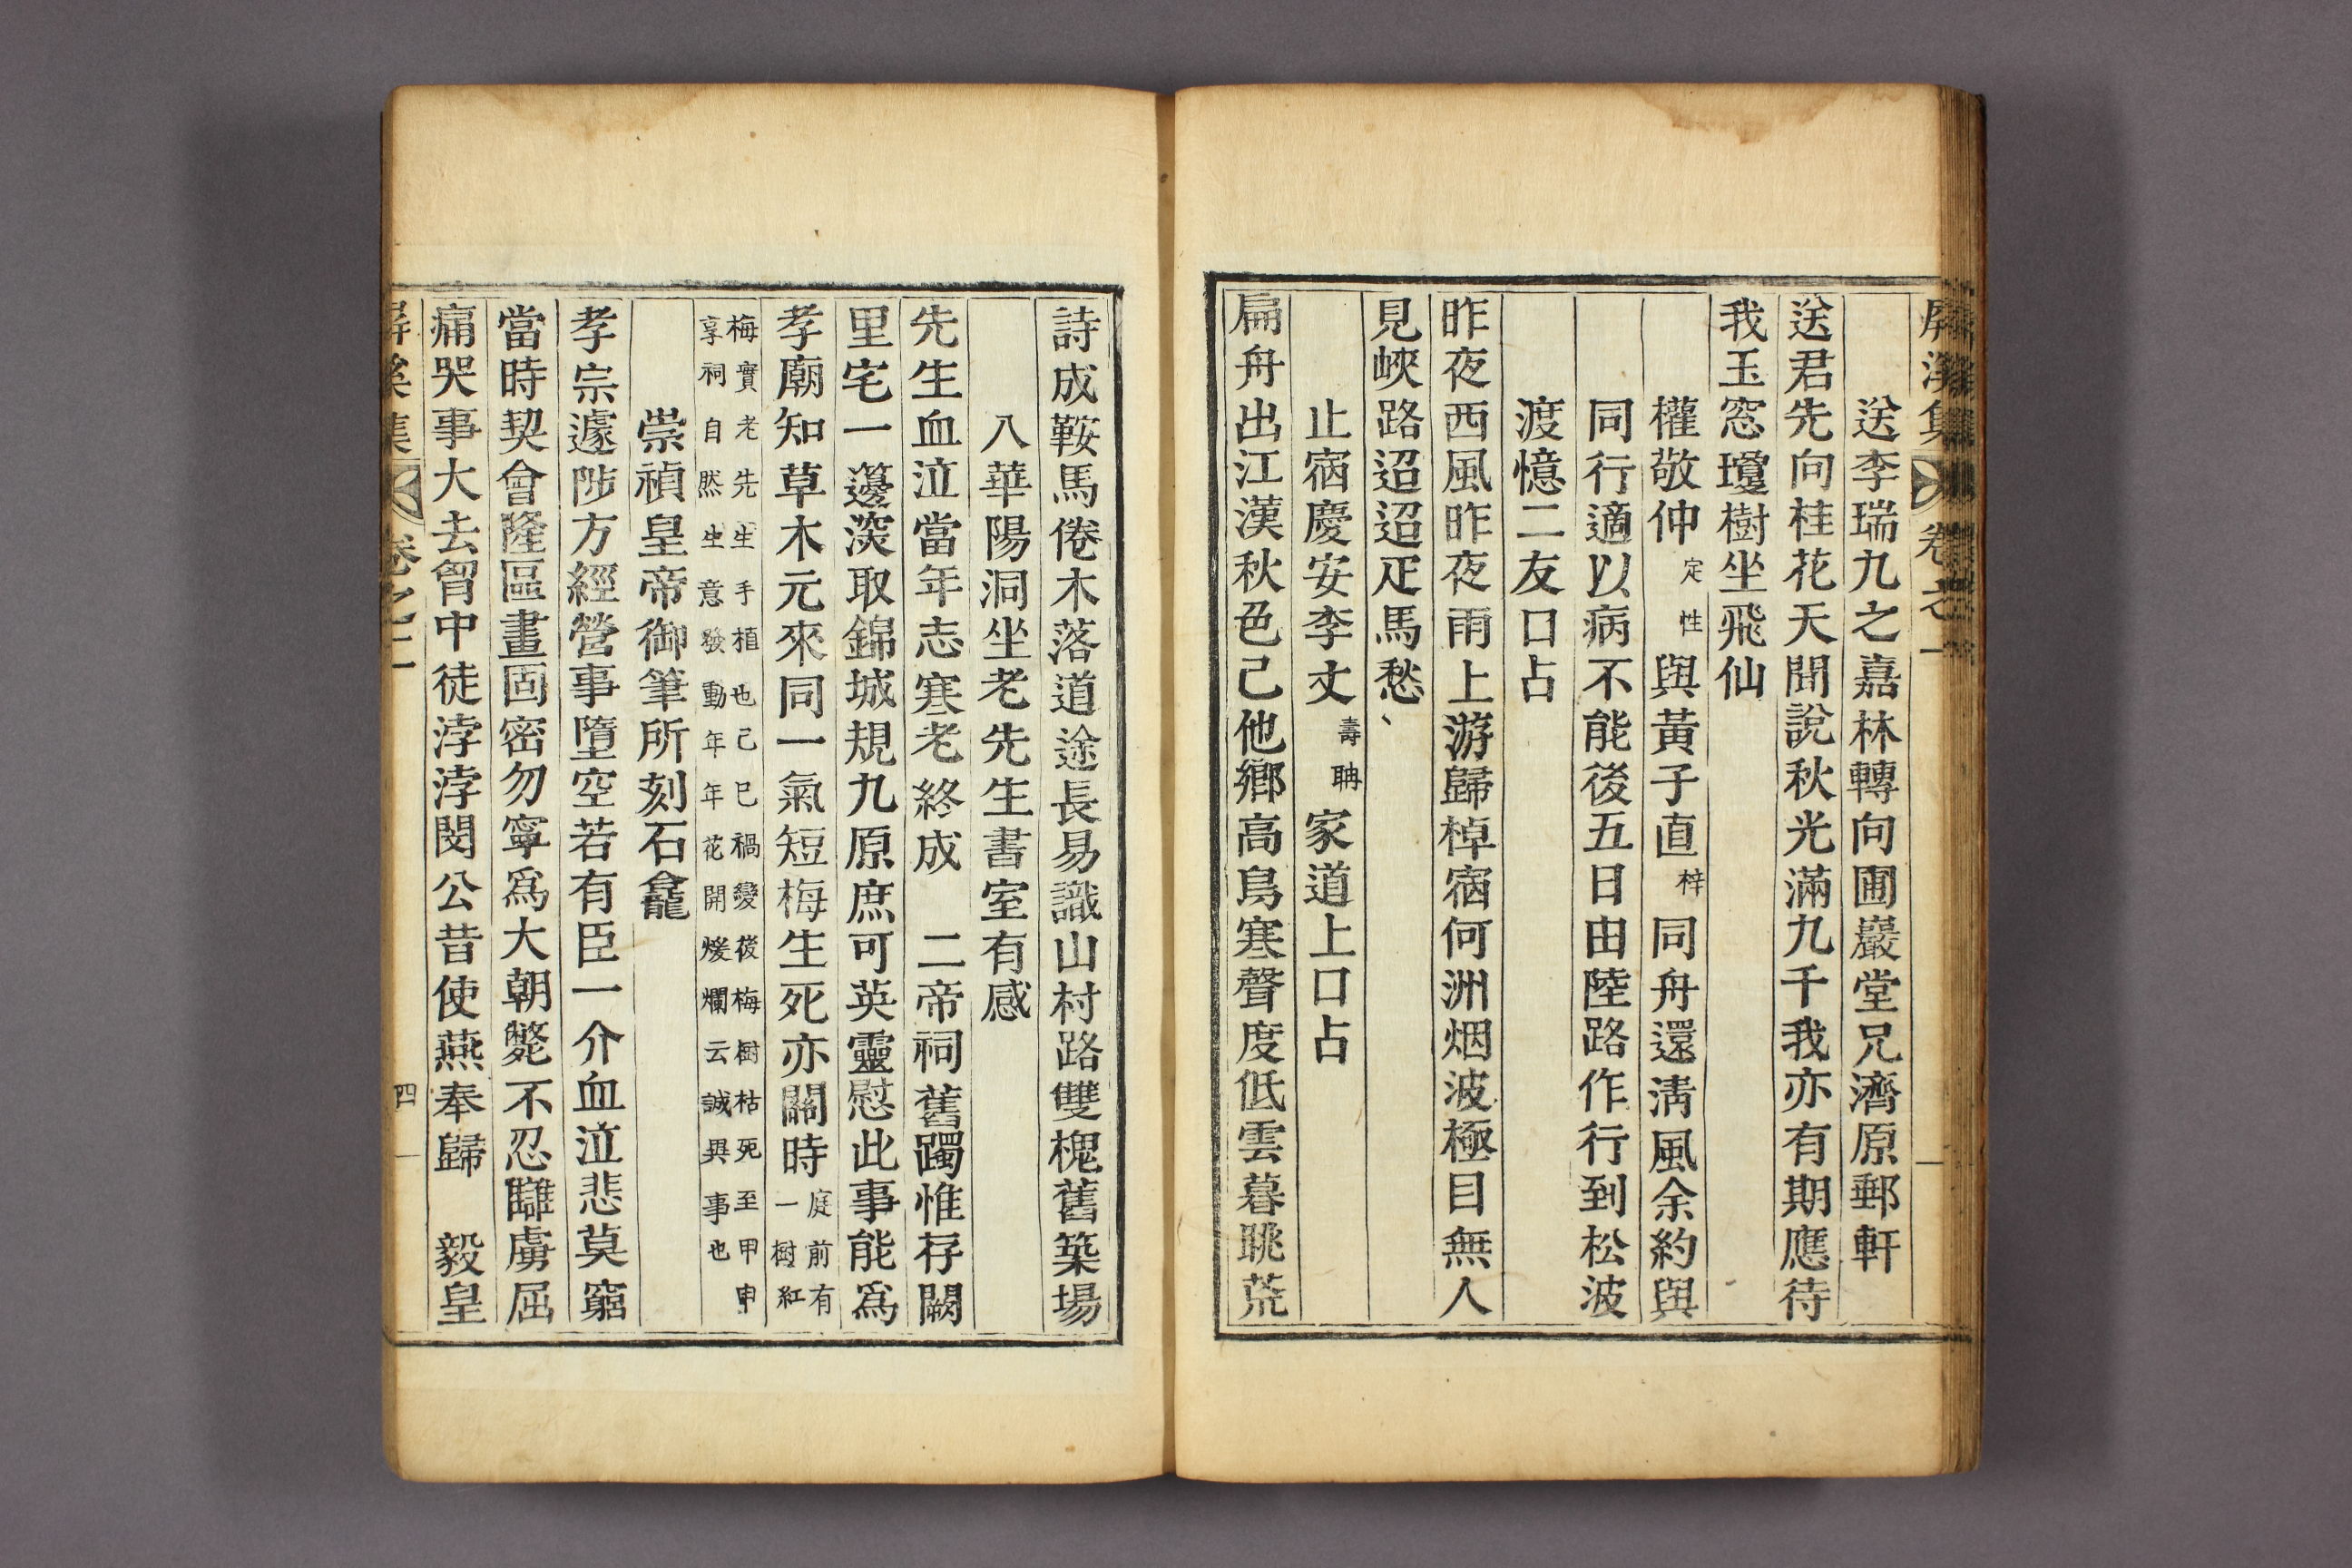 屛溪集 卷之一
送李瑞九之嘉林轉向圃巖堂兄濟原郵軒
送君先向桂花天聞說秋光滿九千我亦有期應待
我玉窓瓊樹坐飛仙
權敬仲定性與黃子直梓同舟還淸風余約與
同行適以病不能後五日由陸路作行到松波
渡憶二友口占
昨夜西風昨夜雨上游歸棹宿何洲烟波極目無人
見峽路迢迢疋馬愁
止宿慶安李丈壽聃家道上口占
扁舟出江漢秋色己他鄕高鳥寒聲度低雲暮眺荒
詩成鞍馬倦木落道途長易識山村路雙槐舊築場
八華陽洞坐老先生書室有感
先生血泣當年志寒老終成 二帝祠舊躅惟存闕
里宅一籩深取錦城規九原庶可英靈慰此事能爲
孝廟知草木元來同一氣短梅生死亦關時庭前有
一樹紅
梅實老先生手植也己巳禍變後梅樹枯死至甲申
享祠自然生意發動年年花開爛熳云誠異事也
崇禎皇帝御筆所刻石龕
孝宗遽陟方經營事墮空若有臣一介血泣悲莫窮
當時契會隆區畫固密勿寧爲大朝斃不忍讎虜屈
痛哭事大去胷中徒渟渟閔公昔使燕奉歸 毅皇
屛溪集 卷之一 四